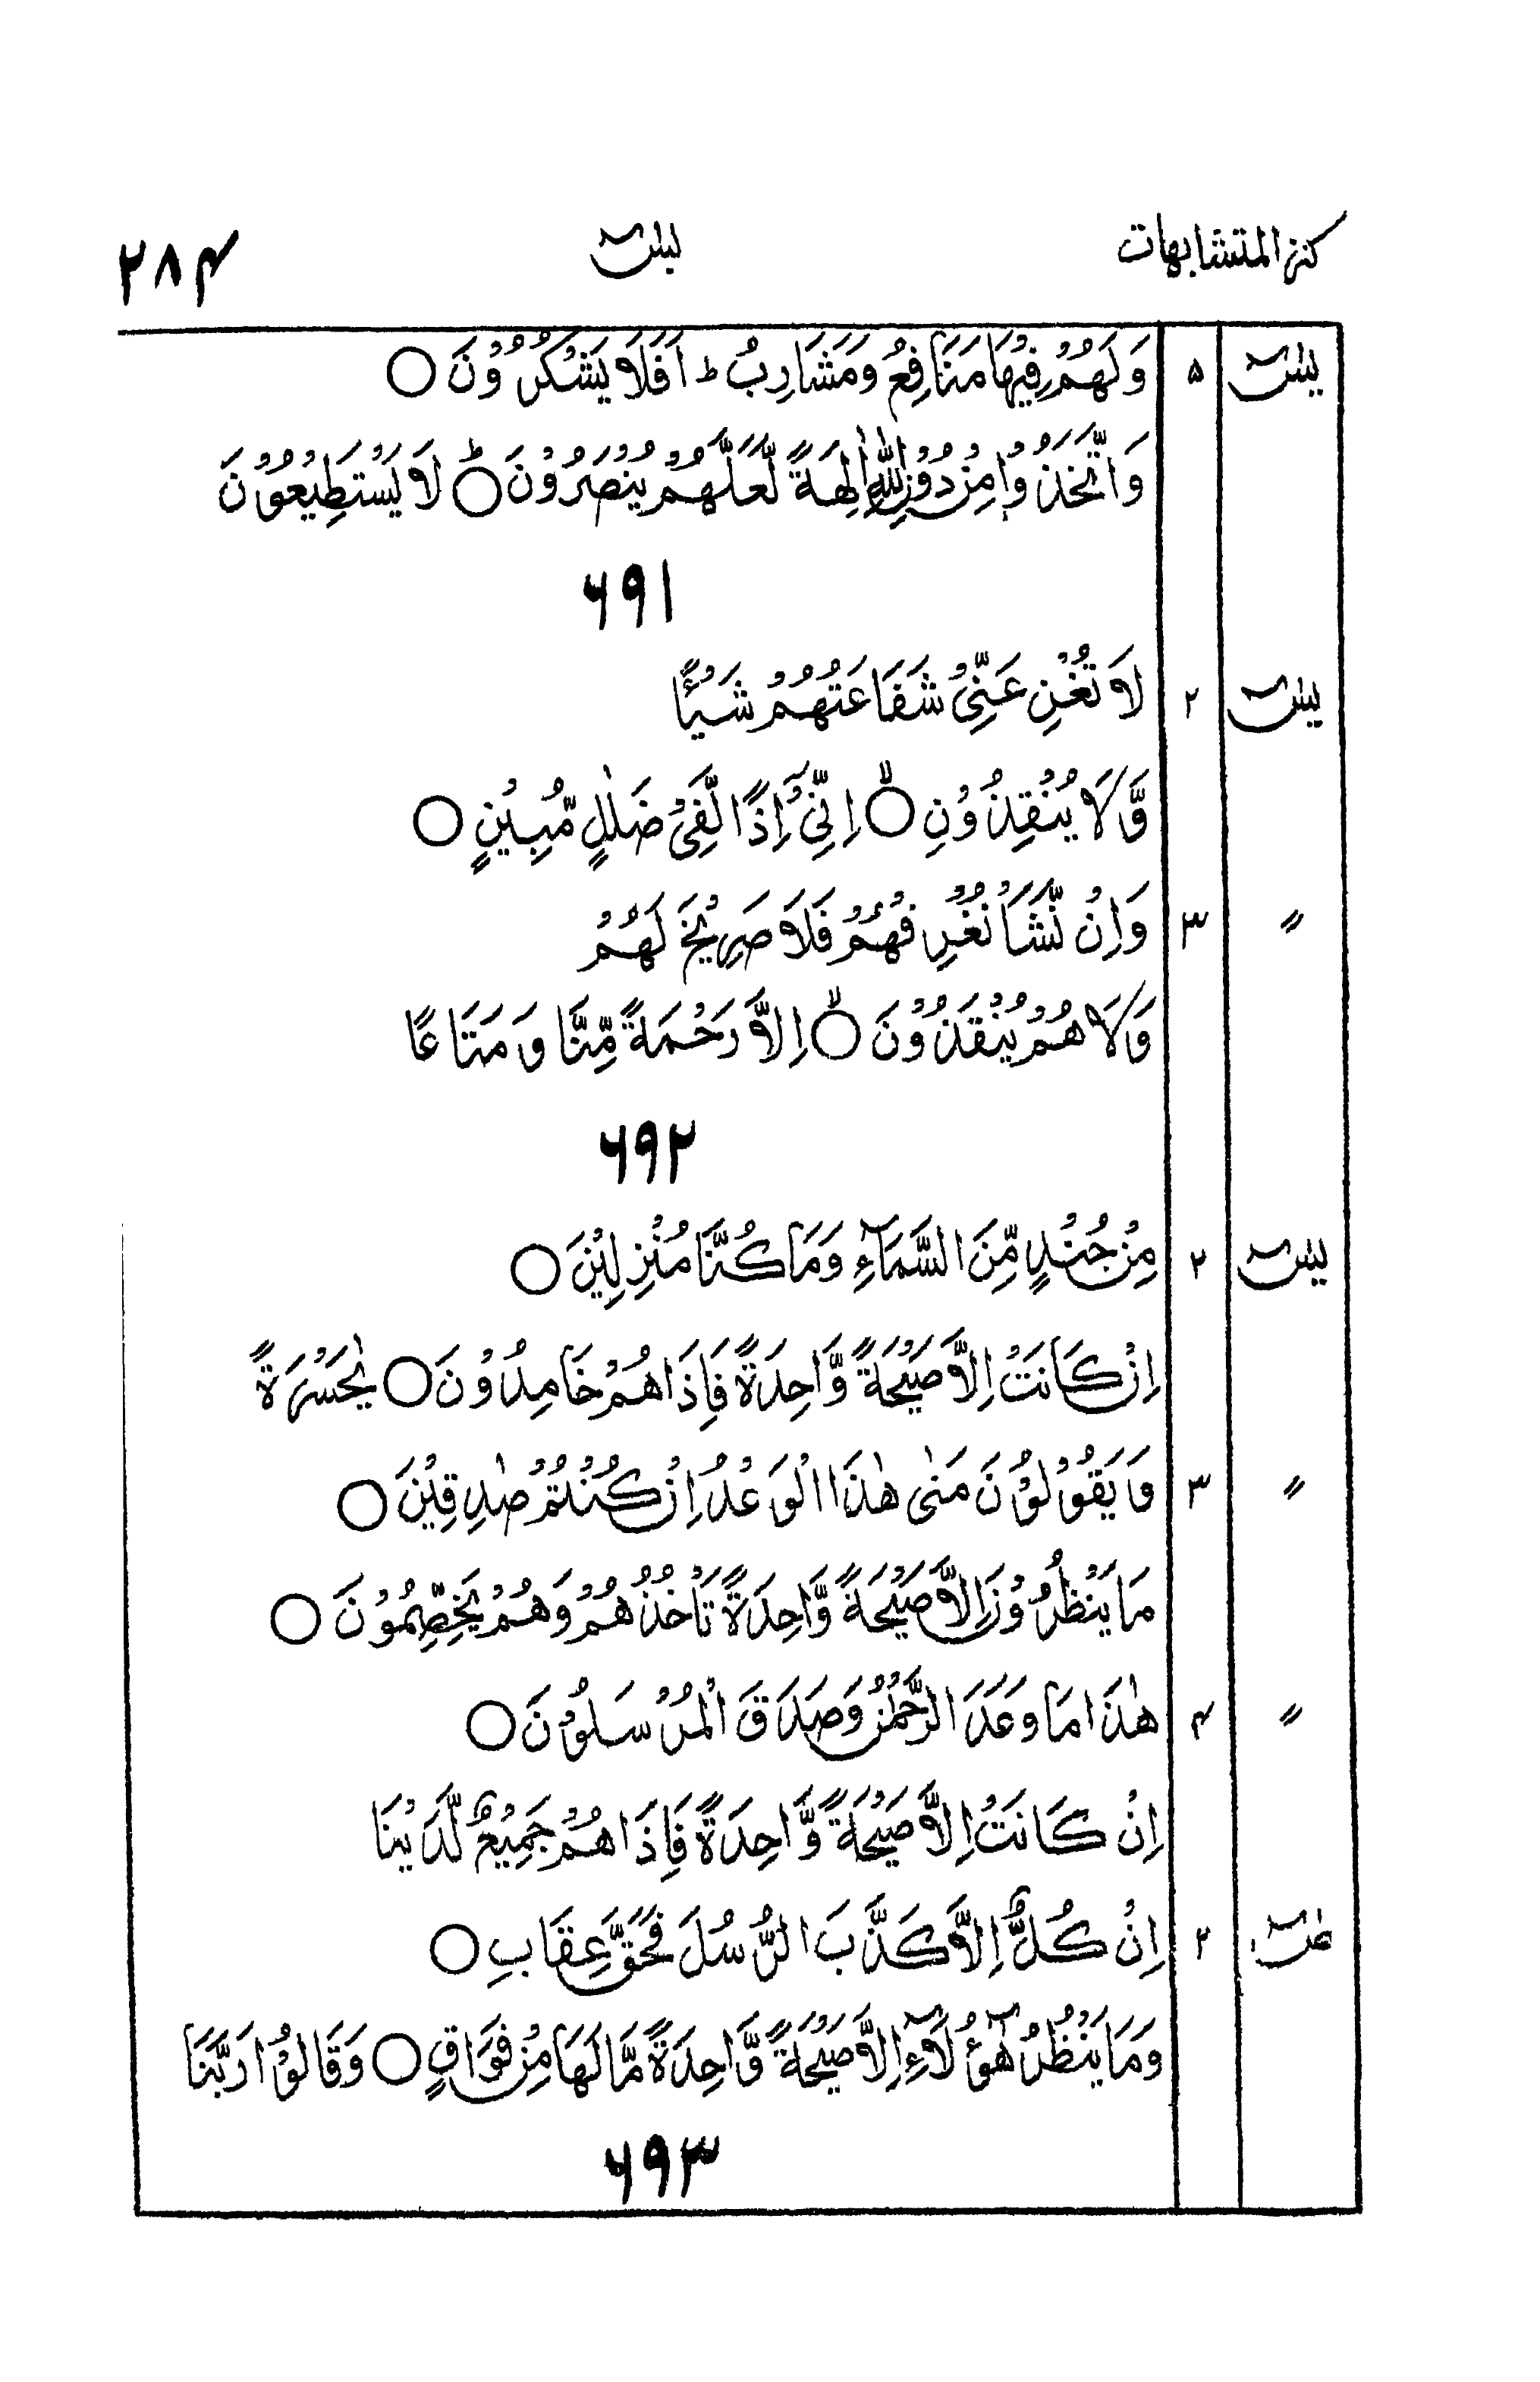 كنز المتشابهات يٰسٓ ۲۸۴
يٰسٓ ۵ وَلَهُمْ فِيْهَا مَنَافِعُ وَمَشَارِبُ ؕ اَفَلَا يَشْكُرُوْنَ ○
وَاتَّخَذُوْا مِنْ دُوْنِ اللّٰهِ اٰلِهَةً لَّعَلَّهُمْ يُنْصَرُوْنَ ○ؕ لَا يَسْتَطِيْعُوْنَ
۶۹۱
يٰسٓ ۲ لَا تُغْنِ عَنِّيْ شَفَاعَتُهُمْ شَيْـًٔا
وَّلَا يُنْقِذُوْنِ ○ۙ اِنِّيْٓ اِذًا لَّفِيْ ضَلٰلٍ مُّبِيْنٍ ○
〃 ۳ وَاِنْ نَّشَاْ نُغْرِقْهُمْ فَلَا صَرِيْخَ لَهُمْ
وَلَا هُمْ يُنْقَذُوْنَ ○ۙ اِلَّا رَحْمَةً مِّنَّا وَمَتَاعًا
۶۹۲
يٰسٓ ۲ مِنْ جُنْدٍ مِّنَ السَّمَآءِ وَمَا كُنَّا مُنْزِلِيْنَ ○
اِنْ كَانَتْ اِلَّا صَيْحَةً وَّاحِدَةً فَاِذَا هُمْ خَامِدُوْنَ ○ يٰحَسْرَةً
〃 ۳ وَيَقُوْلُوْنَ مَتٰى هٰذَا الْوَعْدُ اِنْ كُنْتُمْ صٰدِقِيْنَ ○
مَا يَنْظُرُوْنَ اِلَّا صَيْحَةً وَّاحِدَةً تَاْخُذُهُمْ وَهُمْ يَخِصِّمُوْنَ ○
〃 ۴ هٰذَا مَا وَعَدَ الرَّحْمٰنُ وَصَدَقَ الْمُرْسَلُوْنَ ○
اِنْ كَانَتْ اِلَّا صَيْحَةً وَّاحِدَةً فَاِذَا هُمْ جَمِيْعٌ لَّدَيْنَا
صٓ ۲ اِنْ كُلٌّ اِلَّا كَذَّبَ الرُّسُلَ فَحَقَّ عِقَابِ ○
وَمَا يَنْظُرُ هٰٓؤُلَآءِ اِلَّا صَيْحَةً وَّاحِدَةً مَّا لَهَا مِنْ فَوَاقٍ ○ وَقَالُوْا رَبَّنَا
۶۹۳